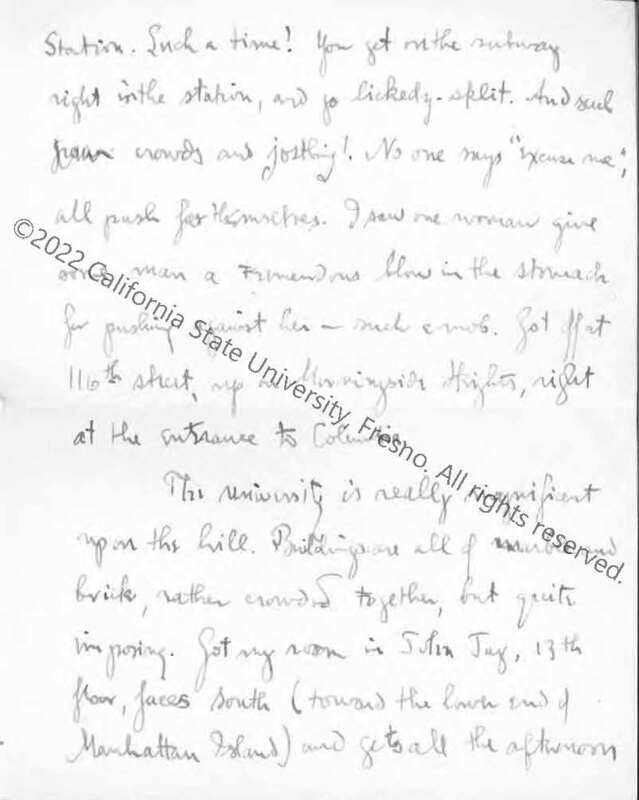 Station. Such a time! You get on the subway
right in the station, and go lickedy-split. And such
crowds and jostling! No one says "excuse me",
all push for themselves. I saw one woman give
some man a tremendous blow in the stomach
for pushing against her – such a mob. Got off at
116th street, up on Morningside Heights, right
at the entrance to Columbia.
The university is really magnificent
up on the hill. Buildings are all of marble and
brick, rather crowded together, but quite
imposing. Got my room in John Jay, 13th
floor, faces south (toward the lower end of
Manhattan Island) and gets all the afternoon
©2022 California State University, Fresno. All rights reserved.